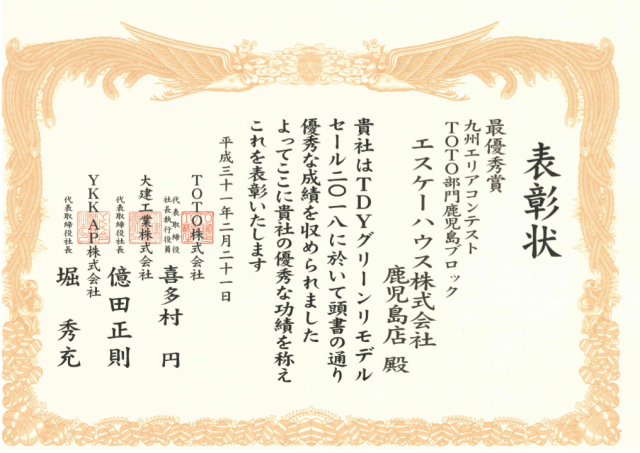 表彰状
最優秀賞
九州エリアコンテスト
TOTO部門鹿児島ブロック
エスケーハウス株式会社
鹿児島店 殿
貴社はTDYグリーンリモデル
セール二〇一八に於いて頭書の通り
優秀な成績を収められました
よってここに貴社の優秀な功績を称え
これを表彰いたします
平成三十一年二月二十一日
TOTO株式会社
代表取締役
社長執行役員
喜多村 円
大建工業株式会社
代表取締役社長
億田正則
YKK AP株式会社
代表取締役社長
堀 秀充